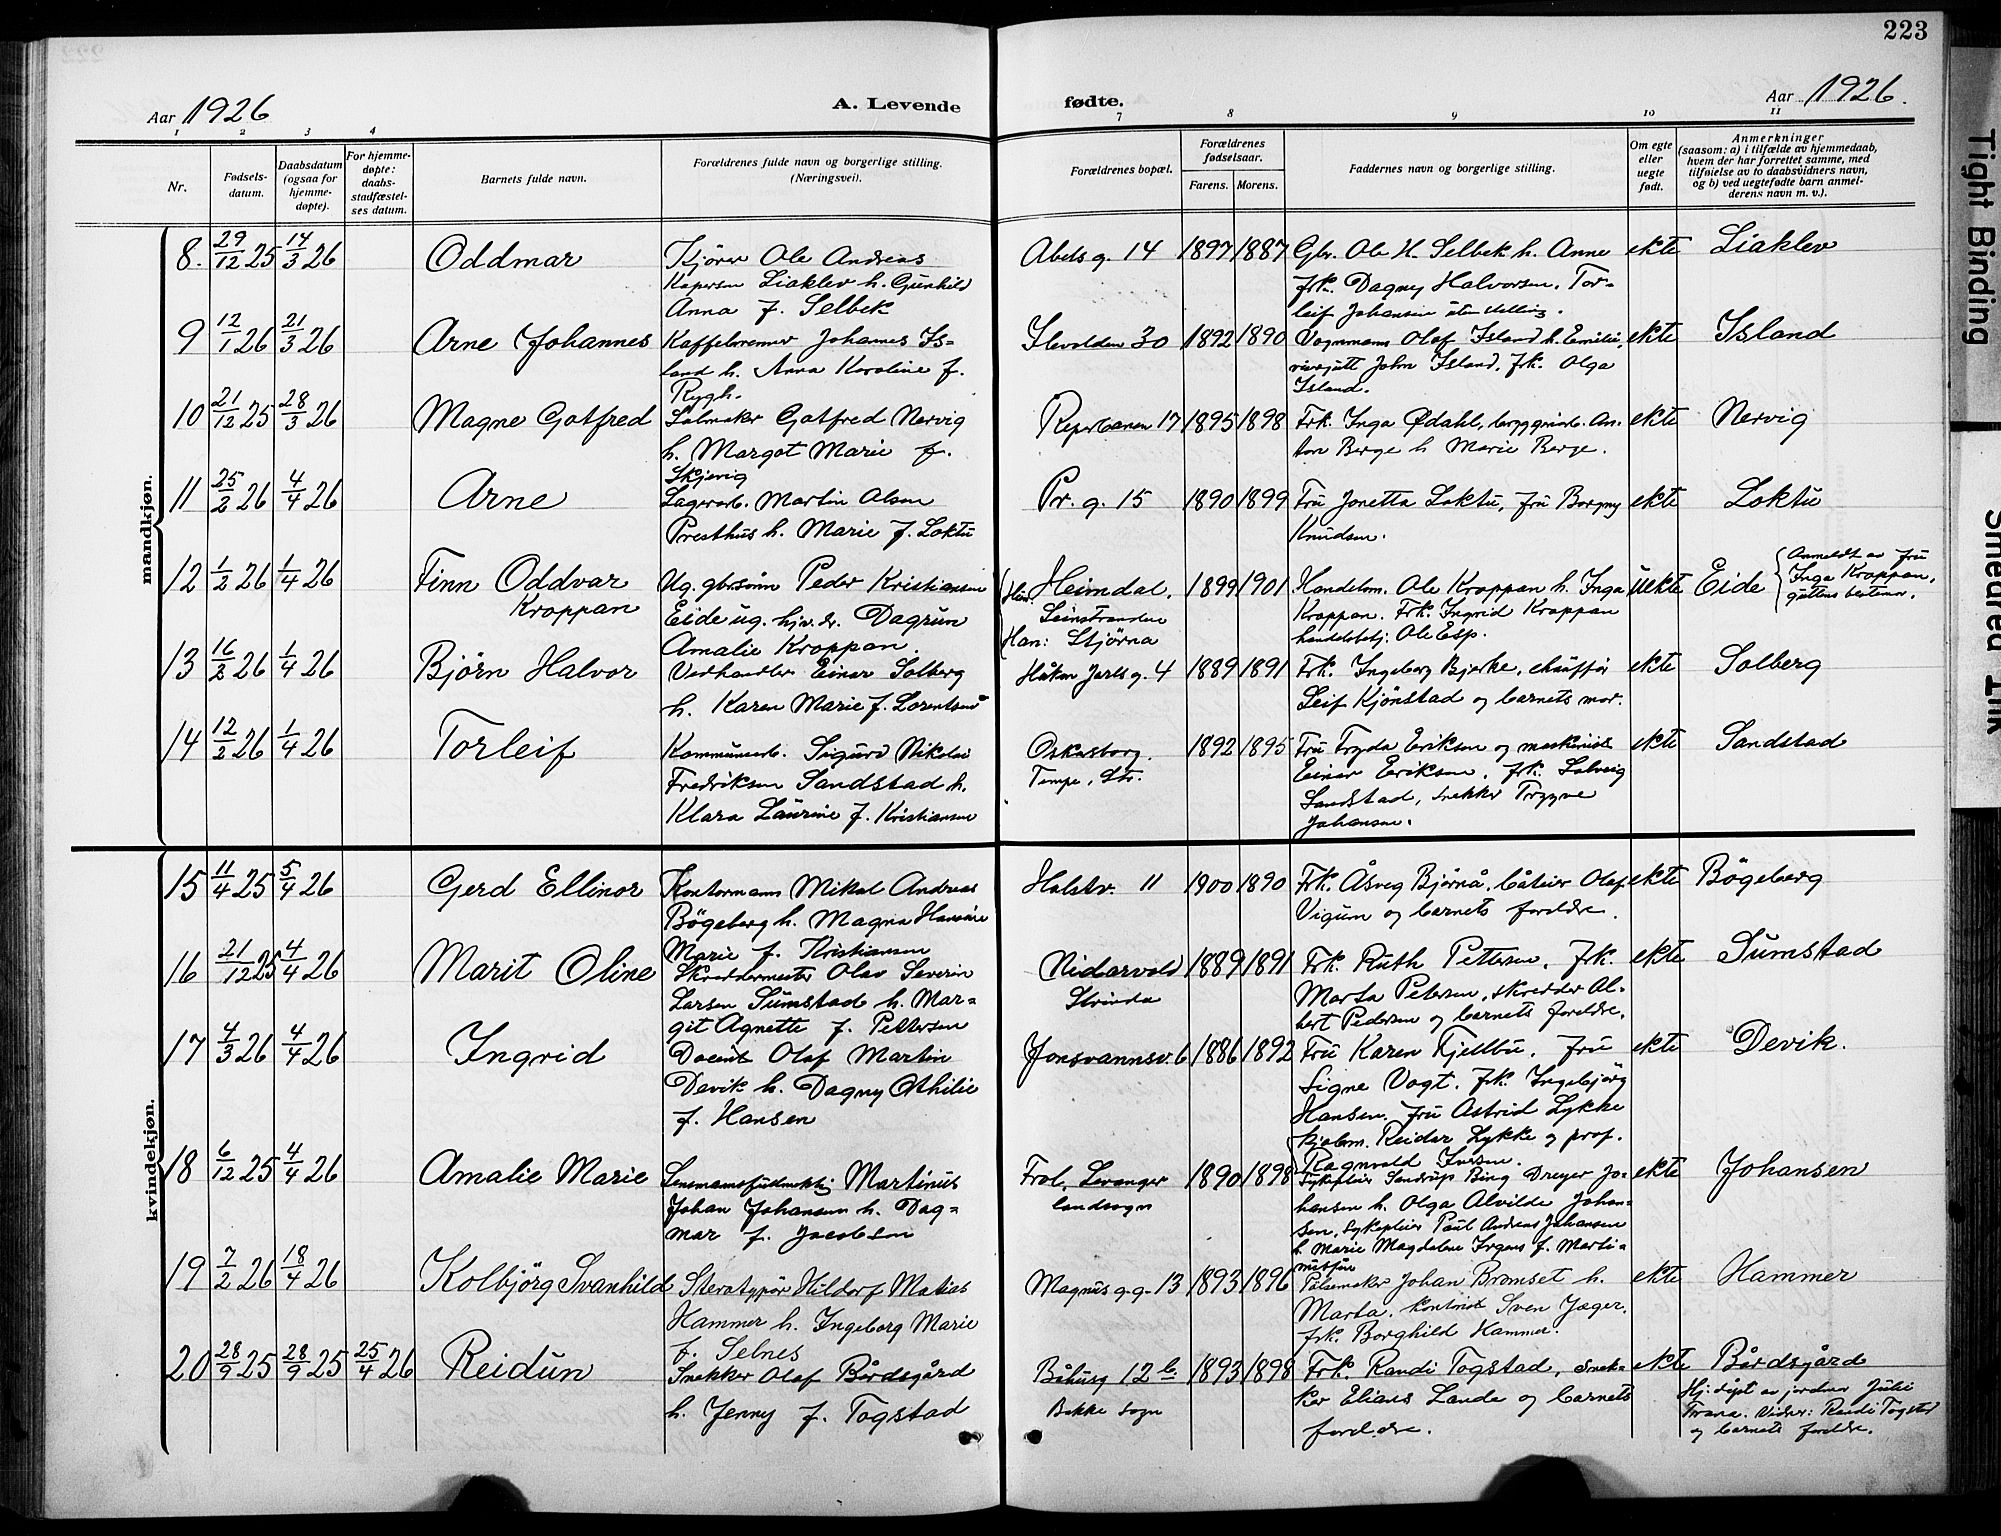 223
Aar 1926
A. Levende
fødte.
Aar 1926.
1 2 3 4 7 8 9 10 11
Nr.
Fødsels-
datum.
Daabsdatum
(ogsaa for
hjemme-
døpte).
For hjemme-
døpte:
daabs-
stadfæstel-
ses datum.
Barnets fulde navn.
Forældrenes fulde navn og borgerlige stilling.
(Næringsvei).
Forældrenes bopæl.
Forældrenes
fødselsaar.
Farens. Morens.
Faddernes navn og borgerlige stilling.
Om egte
eller
uegte
født.
Anmerkninger
(saasom: a) i tilfælde av hjemmedaab,
hvem der har forrettet samme, med
tilføielse av to daabsvidners navn,
og b) ved uegtefødte barn anmel-
derens navn m. v.).
mandkjøn.
8. 29/12 25 14/3 26 Oddmar
Kjører Ole Andreas
Kapersen Liaklev h. Gunhild
Anna f. Selbek
Abels g. 14 1897 1887
Gbr. Ole H. Selbek h. Anne
frk. Dagny Halvorsen. Tor-
leif Johansen uten stilling.
ekte Liaklev
9 12/1 26 21/3 26 Arne Johannes
Kaffebrenner Johannes Is-
land h. Anna Karoline f.
Rygh.
Ilevolden 30 1892 1890
Vognmann Olaf Island h. Emilie,
John Island, frk. Olga
Island.
ekte Island
10 21/12 25 28/3 26 Magne Gotfred
Salmaker Gotfred Nervig
h. Margot Marie f.
Skjevig
Reperbanen 17 1895 1898
Frk. Inga Ødahl, bryggriarb. An-
ton Berge h Marie Berge.
ekte Nervig
11 25/2 26 4/4 26 Arne
Lagerarb. Martin Olsen
Presthus h. Marie f. Loktu
Pr. g. 15 1890 1899
Fru Jonetta Loktu, fru Borgny
Knudsen.
ekte Loktu
12 1/2 26 1/4 26 Finn Oddvar
Kroppan
Ug. gbrsønn Peder Kristiansen
Eide ug. hjv. dr. Dagrun
Amalie Kroppan.
Hun: Heimdal,
Leinstranden
Han: Stjørna
1899 1901
Handelsm. Ole Kroppan h. Inga
Kroppan. Frk. Ingrid Kroppan
handelsbetj. Ole Esp.
uekte Eide
Anmeldt av fru
Inga Kroppan,
guttens bestemor.
13 16/2 26 1/4 26 Bjørn Halvor
Vedhandler Einar Solberg
h. Karen Marie f. Lorentsen
Håkon Jarls g. 4 1889 1891
Frk. Ingeborg Bjerke, chauffør
Leif Kjønstad og barnets mor.
ekte Solberg
14 12/2 26 1/4 26 Torleif
Kommunearb. Sigurd Nikolai
Fredriksen Sandstad h.
Klara Laurine f. Kristiansen
Oskarsborg.
Tempe, Str.
1892 1895
Fru Fryda Eriksen og maskinist
Einar Eriksen. frk. Solveig
Sandstad, snekker Trygve
Johansen.
ekte Sandstad
kvindekjøn.
15 11/4 25 5/4 26 Gerd Ellinor
Kontormann Mikal Andreas
Bögeberg h. Magna Hansine
Marie f. Kristiansen
Halstv. 11 1900 1890
Frk. Åsveg Bjørnå, båteier Olaf
Vigum og barnets foreldre.
ekte Bögeberg
16 21/12 25 4/4 26 Marit Oline
Skreddermester Olav Severin
Larsen Sumstad h. Mar-
git Agnette f. Pettersen
Nidarvold
Strinda
1889 1891
Frk. Ruth Pettersen, frk.
Marta Petersen, skredder Al-
bert Pedersen og barnets foreldre.
ekte Sumstad
17 4/3 26 4/4 26 Ingrid
Docent Olaf Martin
Devik h. Dagny Othilie
f. Hansen
Jonsvannsv. 6 1886 1892
Fru Karen Kjellbu, fru
Signe Vogt. frk. Ingebjörg
Hansen. fru Astrid Lykke
kjøbm. Reidar Lykke og prof.
Ragnvald Iversen.
ekte Devik.
18 6/12 25 4/4 26 Amalie Marie
Lensmannsfullmektig Martinus
Johan Johansen h. Dag-
mar f. Jacobsen
Frol, Levanger
landsogn
1890 1898
Sykepleier Sandrup Bing Dreyer Jo-
hansen h. Olga Alvilde Johan-
sen, sykepleier Paul Andreas Johansen
h. Marie Magdalene Irgens f. Marti-
nussen
ekte Johansen
19 7/2 26 18/4 26 Kolbjörg Svanhild
Sterotypør Hildorf Matias
Hammer h. Ingeborg Marie
f. Selnes
Magnus g.g. 13 1893 1896
Pølsemaker Johan Bromset h.
Marta, kontorist Sven Jæger,
frk. Borghild Hammer.
ekte Hammer
20 28/9 25 28/9 25 25/4 26 Reidun
Snekker Olaf Bårdsgård
h. Jenny f. Togstad
Båhusg 12 b.
Bakke sogn
1893 1898
Frk. Randi Togstad, snek-
ker Elians Lande og barnets
foreldre.
ekte Bårdsgård
Hj: døpt av jordmor Julie
Trana. Vidner: Randi Togstad
og barnets foreldre.
Tight Binding
Smeared Ink